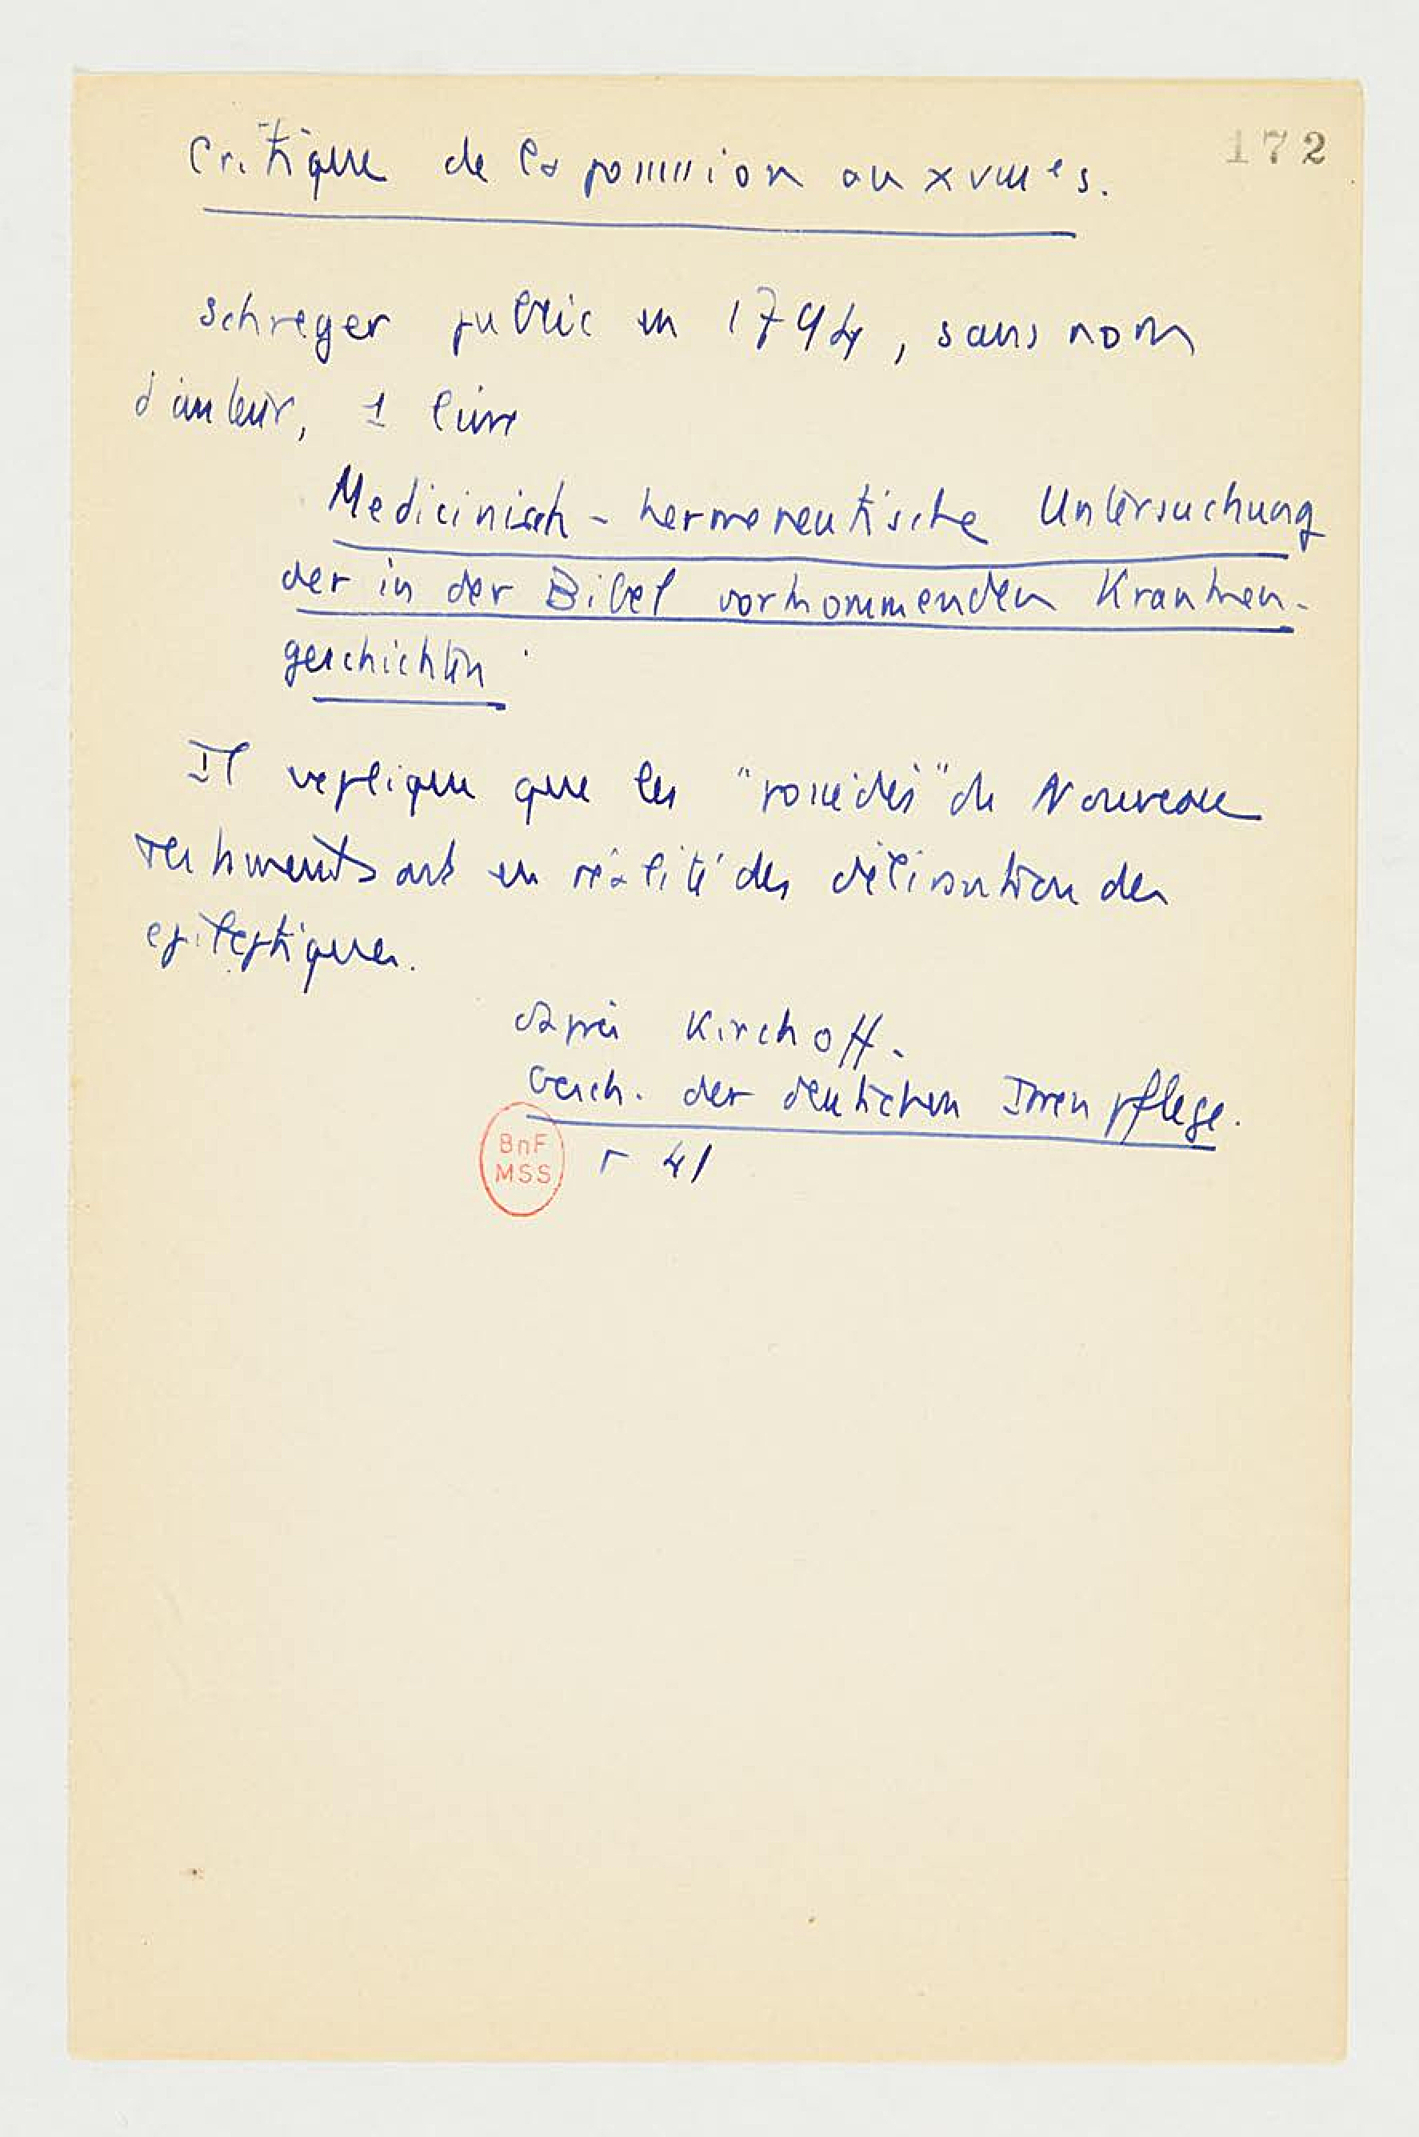 172
Critique de la possession au XVIIIe s.
Schreger publie en 1794, sans nom
d'auteur, 1 livre
Medicinisch-hermeneutische Untersuchung
der in der Bibel vorkommenden Kranken-
geschichten.
Il explique que les "possédés" du Nouveau
testament sont en réalité des des
epileptiques.
d'après Kirchoff.
Gesch. der deutschen Irrenpflege.
p 41
BnF
MSS